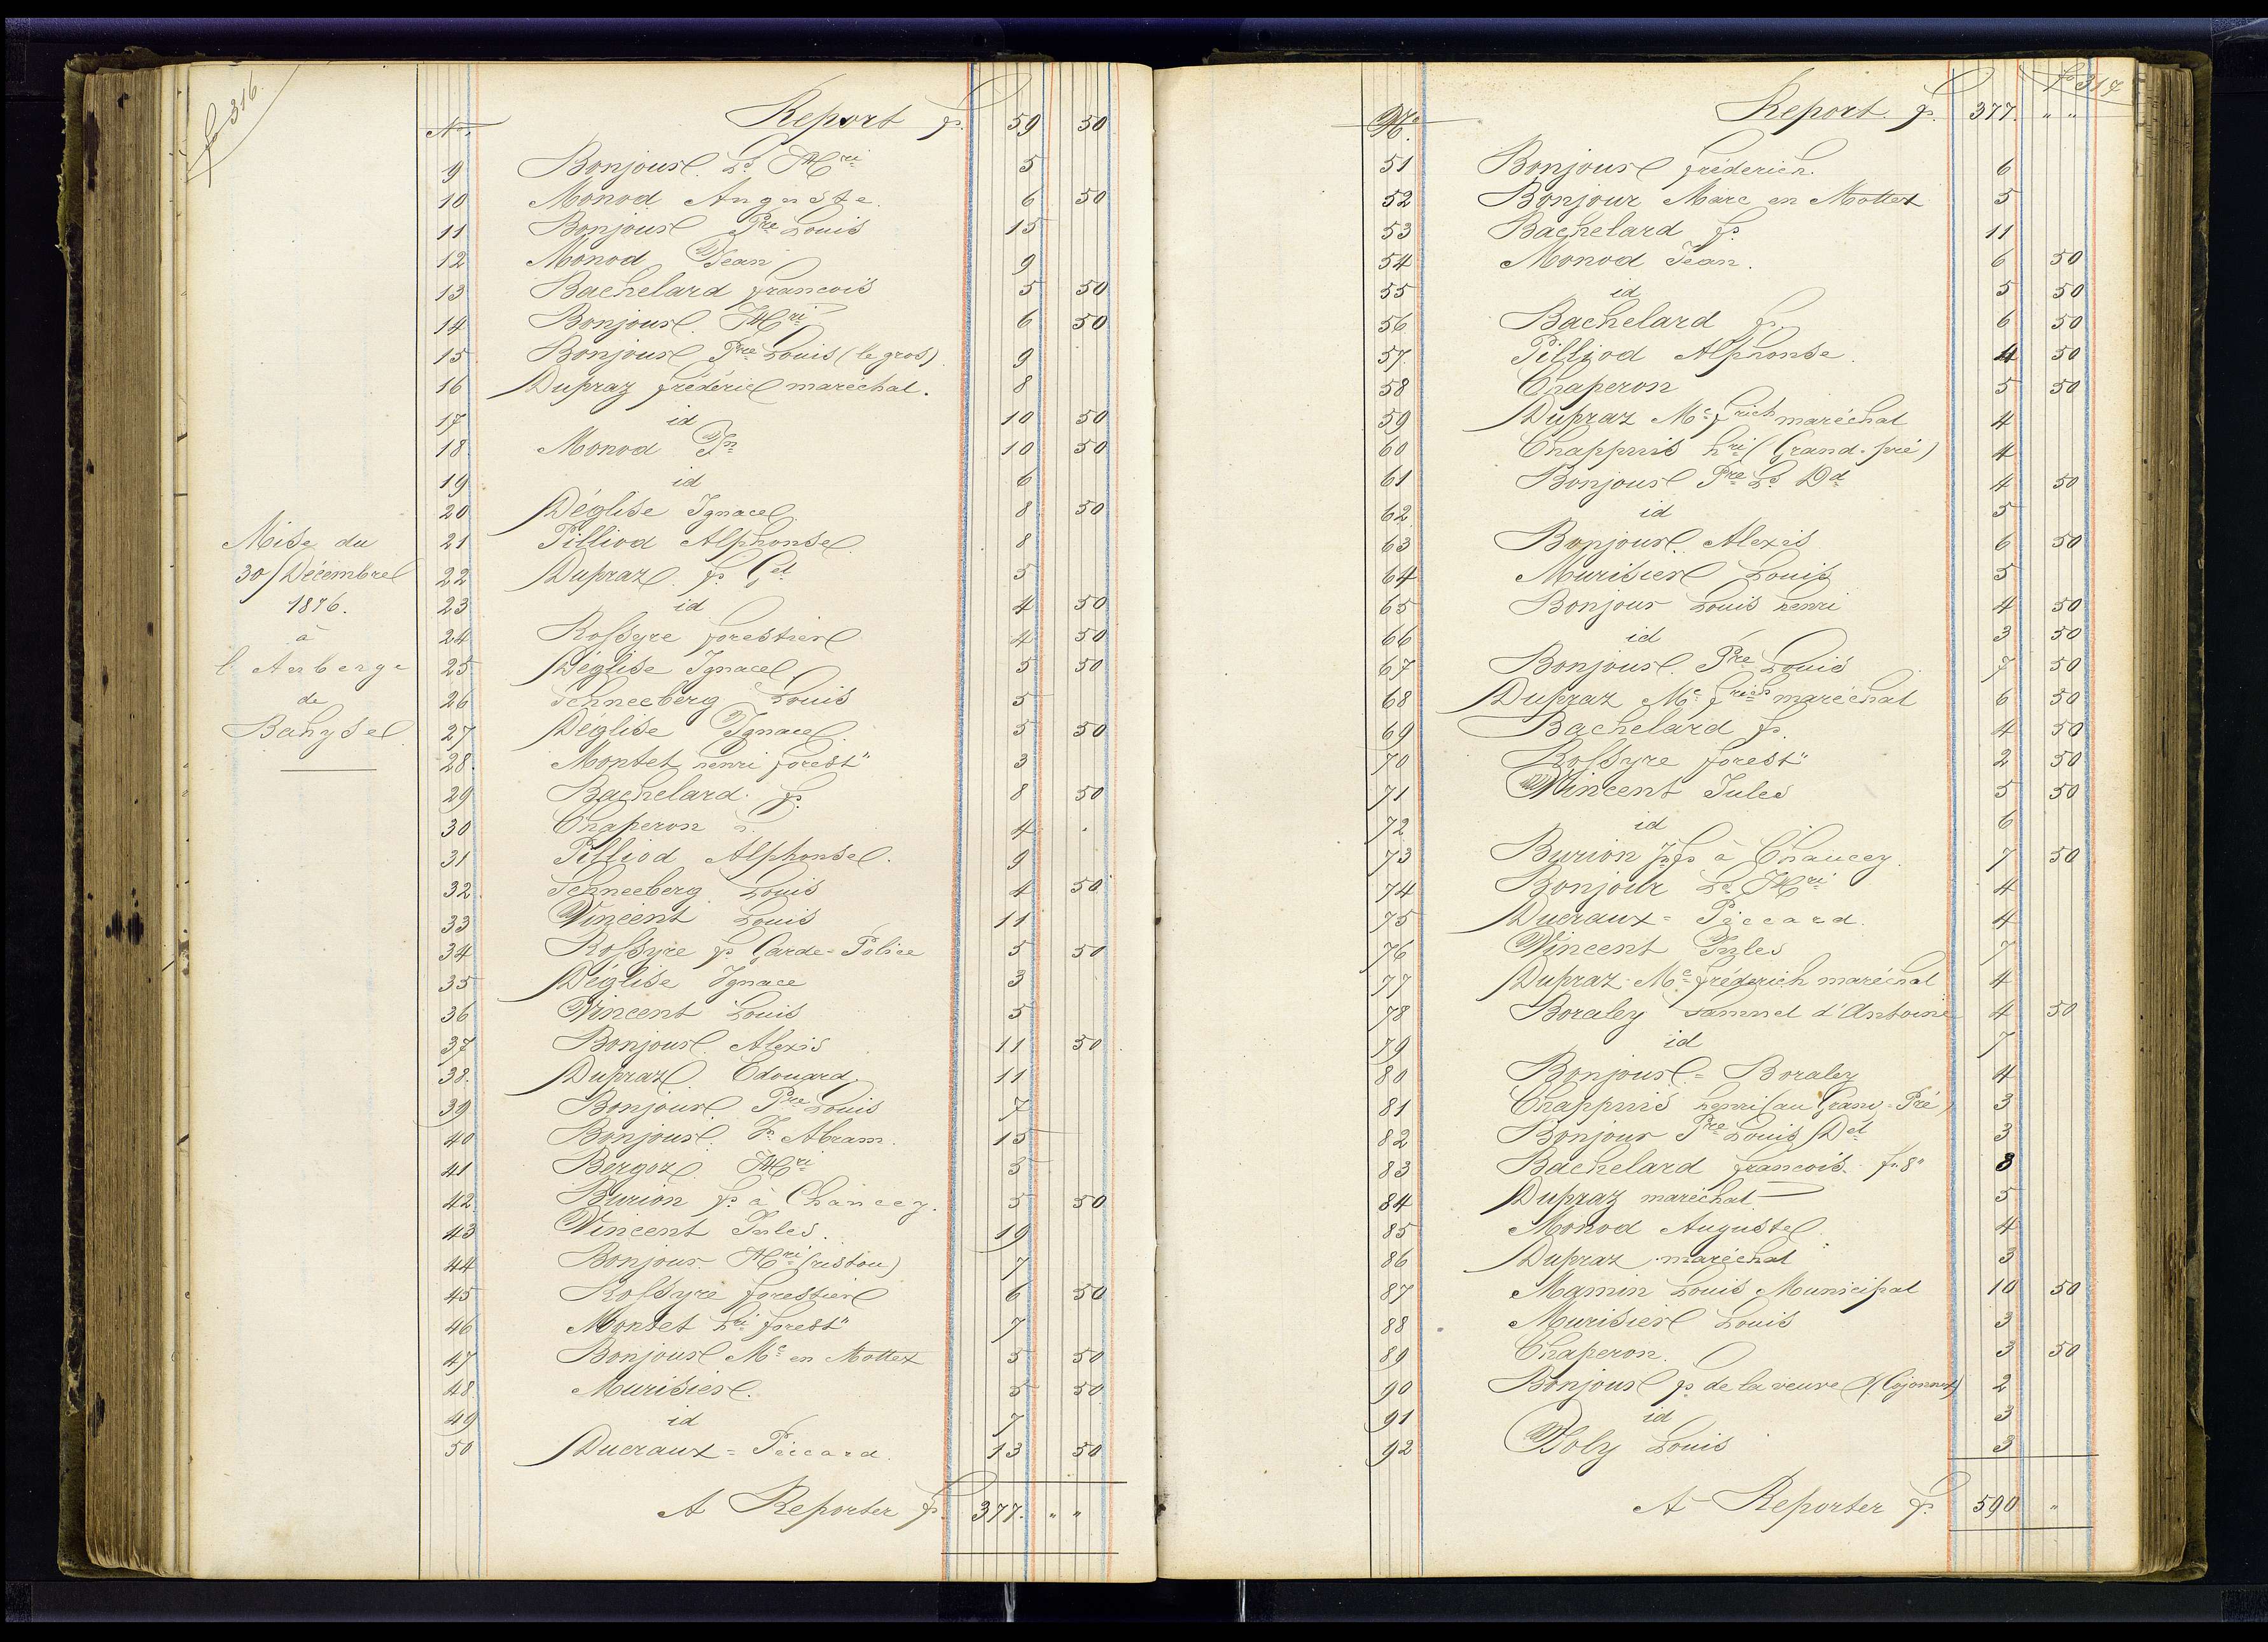 fo 316.
No. Report fs. 59 50
9 Bonjour Ls Hri 5
10 Monod Auguste. 6 50
11 Bonjour Pre Louis 15
12 Monod Jean 9
13 Bachelard francois 5 50
14 Bonjour Hri 6 50
15 Bonjour Pre Louis (le gros) 9
16 Dupraz fréderic maréchal. 8
17 id 10 50
18 Monod Jn 10 50
19 id 6
20 Déglise Ignace 8 50
21 Pilliod Alphonse 8
22 Dupraz fs. Gel 5
23 id 4 50
24 Rossyre forestier 4 50
25 Déglise Ignace 5 50
26 Schneeberg Louis 5
27 Déglise Ignace 5 50
28. Montet henri forest" 3
29 Bachelard fs. 8 50
30 Chaperon 4
31 Pilliod Alphonse. 9
32. Schneeberg Louis 4 50
33 Vincent Louis 11
34 Rossyre fs Garde=Police 5 50
35 Déglise Ignace 3
36 Vincent Louis 5
37 Bonjour Alexis 11 50
38. Dupraz Edouard 11
39 Bonjour Pre Louis 7
40 Bonjour J. Abram. 15
41 Bergoz Hri 5
42 Burion fs à Chancey. 5 50
43 Vincent Jules. 19
44 Bonjour Hri (ristou) 7
45 Rossyre forestier 6 50
46 Montet hri forest" 7
47 Bonjour Mc en Mottex 5 50
48. Murisier. 5 50
49 id 7
50 Ducraux=Piccard. 13 50
A Reporter fs. 377. " "
Mise du
30 Décembre
1876.
à
l'Auberge
de
Bahyse
fo 317
No. Report. fs. 377. " "
51 Bonjour fréderich. 6
52 Bonjour Marc en Mottex 5
53 Bachelard fs. 11
54 Monod Jean. 6 50
55 id 5 50
56 Bachelard fs. 6 50
57. Pilliod Alphonse. 4 50
58 Chaperon 5 50
59 Dupraz Mc frich maréchal 4
60 Chappuis hri (Grand-pré) 4
61 Bonjour Pre Ls Dd 4 50
62 id 5
63 Bonjour Alexis 6 50
64 Murisier Louis 5
65 Bonjour Louis henri 4 50
66 id 3 50
67 Bonjour Pre Louis 7 50
68 Dupraz Mc frich maréchal 6 50
69 Bachelard fs. 4 50
70 Rossyre forest" 2 50
71 Vincent Jules 5 50
72 id 6
73 Burion Jn fs à Chancey. 7 50
74 Bonjour Ls Hri 4
75 Ducraux=Piccard. 4
76 Vincent Jules 7
77 Dupraz Mc fréderich maréchal 4
78 Boraley Samuel d'Antoine 4 50
79 id 7
80 Bonjour=Boraley 4
81 Chappuis henri (au Grand=Pré) 3
82 Bonjour Pre Louis Dd 3
83 Bachelard francois fr. 8" 8
84 Dupraz maréchal 5
85 Monod Auguste. 4
86 Dupraz maréchal 3
87 Mamin Louis Municipal 10 50
88 Murisier Louis 3
89 Chaperon. 3 50
90 Bonjour fs de la veuve (Cojonnex) 2
91 id 3
92 Boly Louis 3
A Reporter fs. 590 "